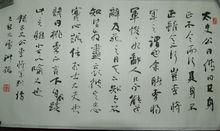 太史公曰傳曰其身
正不令而行其身不
正雖令不從其李將
軍之謂也余睹李將
軍悛悛如鄙人口不能
道辭及死之日天下知與不
知皆為盡哀彼其忠實
心誠信於士大夫也諺
曰桃李不言下自成蹊
此言雖小可以諭大也